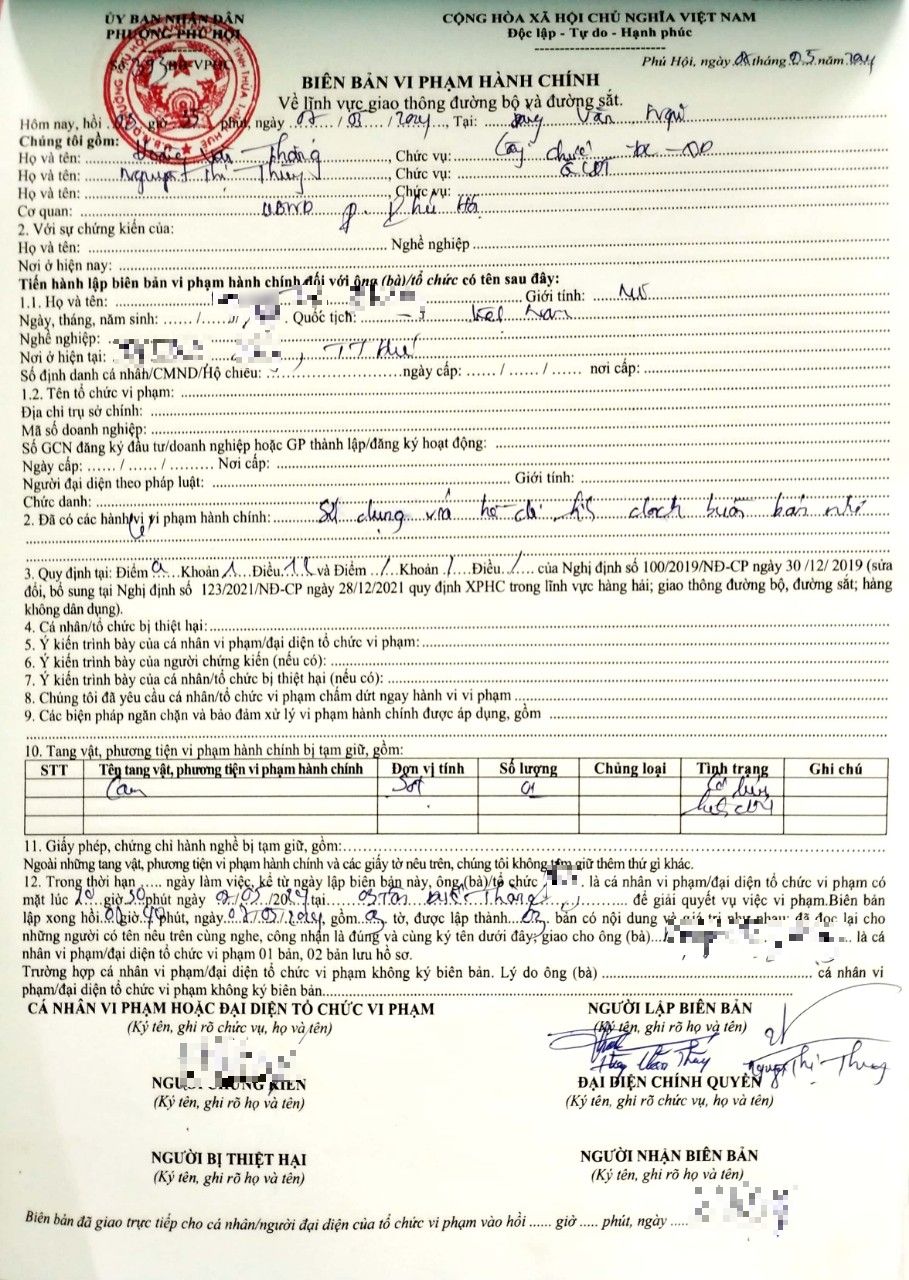 ỦY BAN NHÂN DÂN
PHƯỜNG PHÚ HỘI
CỘNG HÒA XÃ HỘI CHỦ NGHĨA VIỆT NAM
Độc lập - Tự do - Hạnh phúc
Phú Hội, ngày 08 tháng 05 năm 2024
BIÊN BẢN VI PHẠM HÀNH CHÍNH
Về lĩnh vực giao thông đường bộ và đường sắt.
Hôm nay, hồi 08 giờ 35 phút, ngày /2024, Tại:
Chúng tôi gồm:
Họ và tên: Chức vụ:
Họ và tên: Nguyễn Thị Thủy, Chức vụ:
Họ và tên: , Chức vụ:
Cơ quan: UBND p. Phú Hội
2. Với sự chứng kiến của:
Họ và tên: Nghề nghiệp
Nơi ở hiện nay:
Tiến hành lập biên bản vi phạm hành chính đối với ông (bà)/tổ chức có tên sau đây:
1.1. Họ và tên: Giới tính: Nữ
Ngày, tháng, năm sinh: ...... / Quốc tịch: Việt Nam
Nghề nghiệp:
Nơi ở hiện tại: , TT Huế
Số định danh cá nhân/CMND/Hộ chiếu: ngày cấp: ...... / ...... / ...... nơi cấp:
1.2. Tên tổ chức vi phạm:
Địa chỉ trụ sở chính:
Mã số doanh nghiệp:
Số GCN đăng ký đầu tư/doanh nghiệp hoặc GP thành lập/đăng ký hoạt động:
Ngày cấp: ...... / ...... / ......... Nơi cấp:
Người đại diện theo pháp luật: Giới tính:
Chức danh:
2. Đã có các hành vi vi phạm hành chính: Sử dụng vỉa hè để buôn bán nhỏ
3. Quy định tại: Điểm a Khoản 1 Điều 12 và Điểm / Khoản / Điều / của Nghị định số 100/2019/NĐ-CP ngày 30 /12/ 2019 (sửa
đổi, bổ sung tại Nghị định số 123/2021/NĐ-CP ngày 28/12/2021 quy định XPHC trong lĩnh vực hàng hải; giao thông đường bộ, đường sắt; hàng
không dân dụng).
4. Cá nhân/tổ chức bị thiệt hại:
5. Ý kiến trình bày của cá nhân vi phạm/đại diện tổ chức vi phạm:
6. Ý kiến trình bày của người chứng kiến (nếu có):
7. Ý kiến trình bày của cá nhân/tổ chức bị thiệt hại (nếu có):
8. Chúng tôi đã yêu cầu cá nhân/tổ chức vi phạm chấm dứt ngay hành vi vi phạm
9. Các biện pháp ngăn chặn và bảo đảm xử lý vi phạm hành chính được áp dụng, gồm
10. Tang vật, phương tiện vi phạm hành chính bị tạm giữ, gồm:
STT Tên tang vật, phương tiện vi phạm hành chính Đơn vị tính Số lượng Chủng loại Tình trạng Ghi chú
Cam 01
11. Giấy phép, chứng chỉ hành nghề bị tạm giữ, gồm:
Ngoài những tang vật, phương tiện vi phạm hành chính và các giấy tờ nêu trên, chúng tôi không tạm giữ thêm thứ gì khác.
12. Trong thời hạn ..... ngày làm việc, kể từ ngày lập biên bản này, ông (bà)/tổ chức là cá nhân vi phạm/đại diện tổ chức vi phạm có
mặt lúc giờ 30 phút ngày /2024 tại 03 Tôn Thất Thiệp để giải quyết vụ việc vi phạm.Biên bản
lập xong hồi giờ phút, ngày /2024, gồm tờ, được lập thành 03 bản có nội dung và giá trị như nhau; đã đọc lại cho
những người có tên nêu trên cùng nghe, công nhận là đúng và cùng ký tên dưới đây; giao cho ông (bà) là cá
nhân vi phạm/đại diện tổ chức vi phạm 01 bản, 02 bản lưu hồ sơ.
Trường hợp cá nhân vi phạm/đại diện tổ chức vi phạm không ký biên bản. Lý do ông (bà) cá nhân vi
phạm/đại diện tổ chức vi phạm không ký biên bản
CÁ NHÂN VI PHẠM HOẶC ĐẠI DIỆN TỔ CHỨC VI PHẠM
(Ký tên, ghi rõ chức vụ, họ và tên)
NGƯỜI LẬP BIÊN BẢN
(Ký tên, ghi rõ họ và tên)
NGƯỜI CHỨNG KIẾN
(Ký tên, ghi rõ họ và tên)
ĐẠI DIỆN CHÍNH QUYỀN
(Ký tên, ghi rõ chức vụ, họ và tên)
NGƯỜI BỊ THIỆT HẠI
(Ký tên, ghi rõ họ và tên)
NGƯỜI NHẬN BIÊN BẢN
(Ký tên, ghi rõ họ và tên)
Biên bản đã giao trực tiếp cho cá nhân/người đại diện của tổ chức vi phạm vào hồi ...... giờ ..... phút, ngày .....